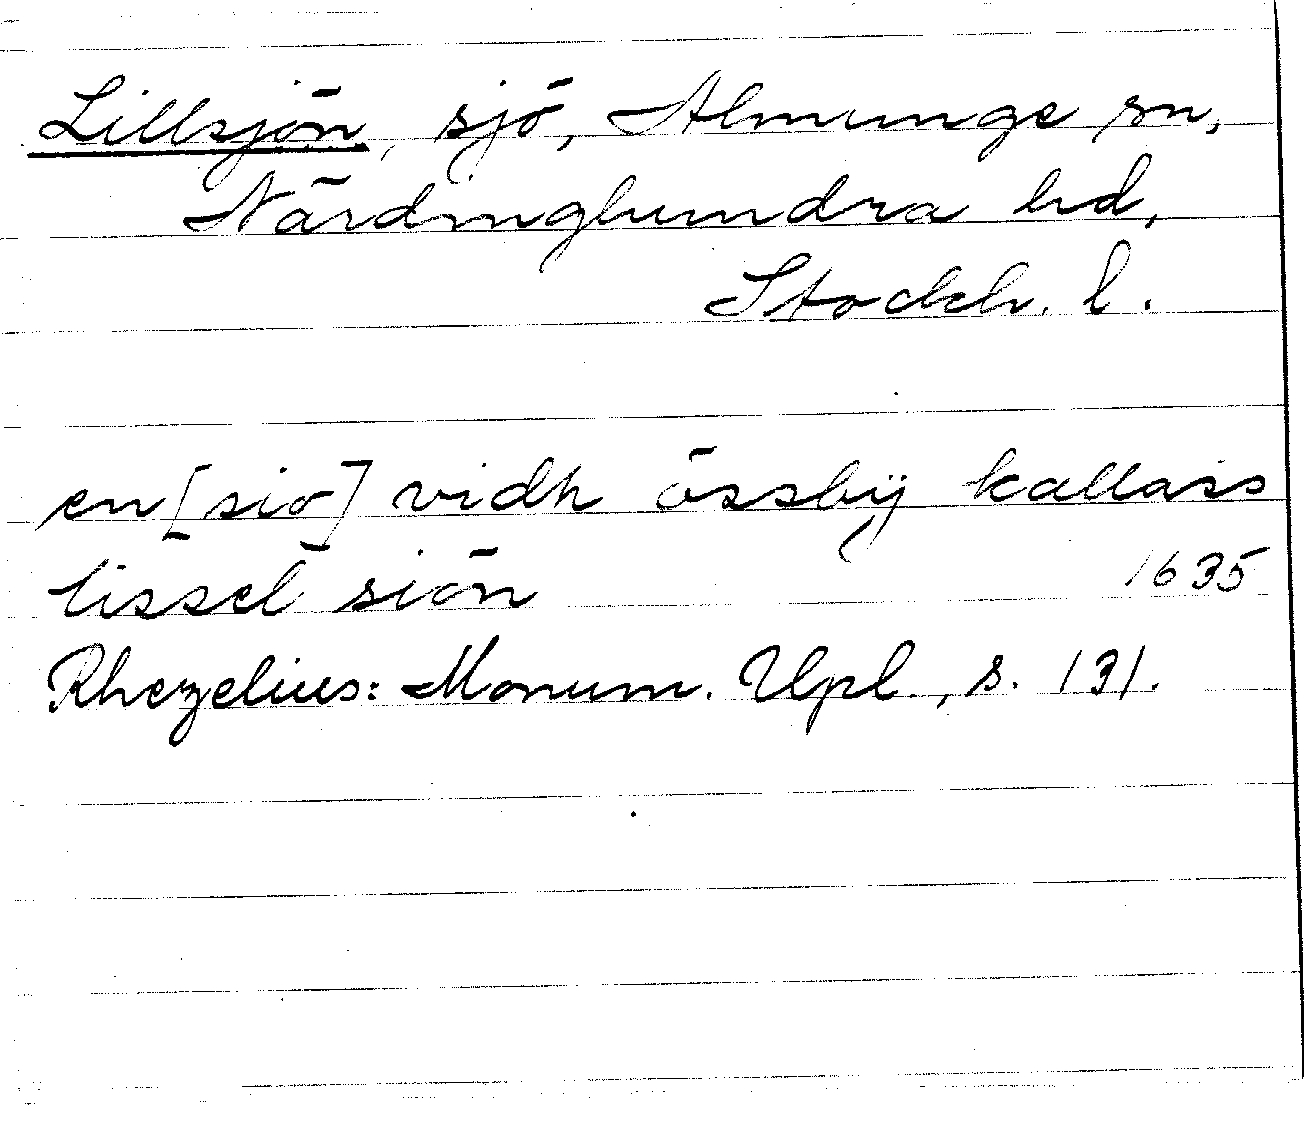 Lillsjön, sjö, Almunge sn,
Närdinghundra hd,
Stockh. l.
en [sio] vidh össbÿ kallass
lissel siön 1635
Rhezelius: Monum. Upl., s. 131.